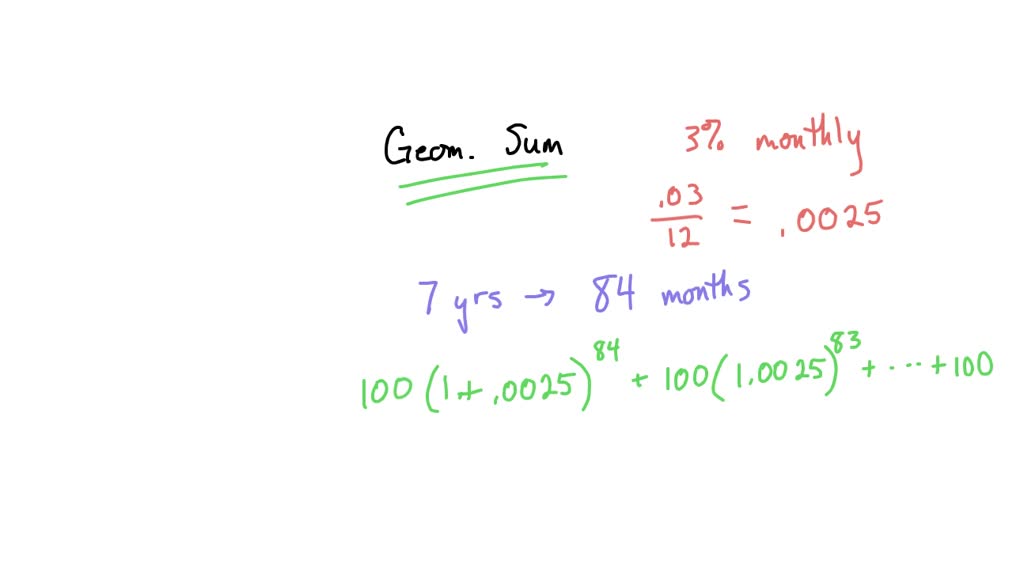 Geom. Sum
3% monthly
.03/12 = .0025
7 yrs → 84 months
100(1+.0025)^84 + 100(1.0025)^83 + ... + 100